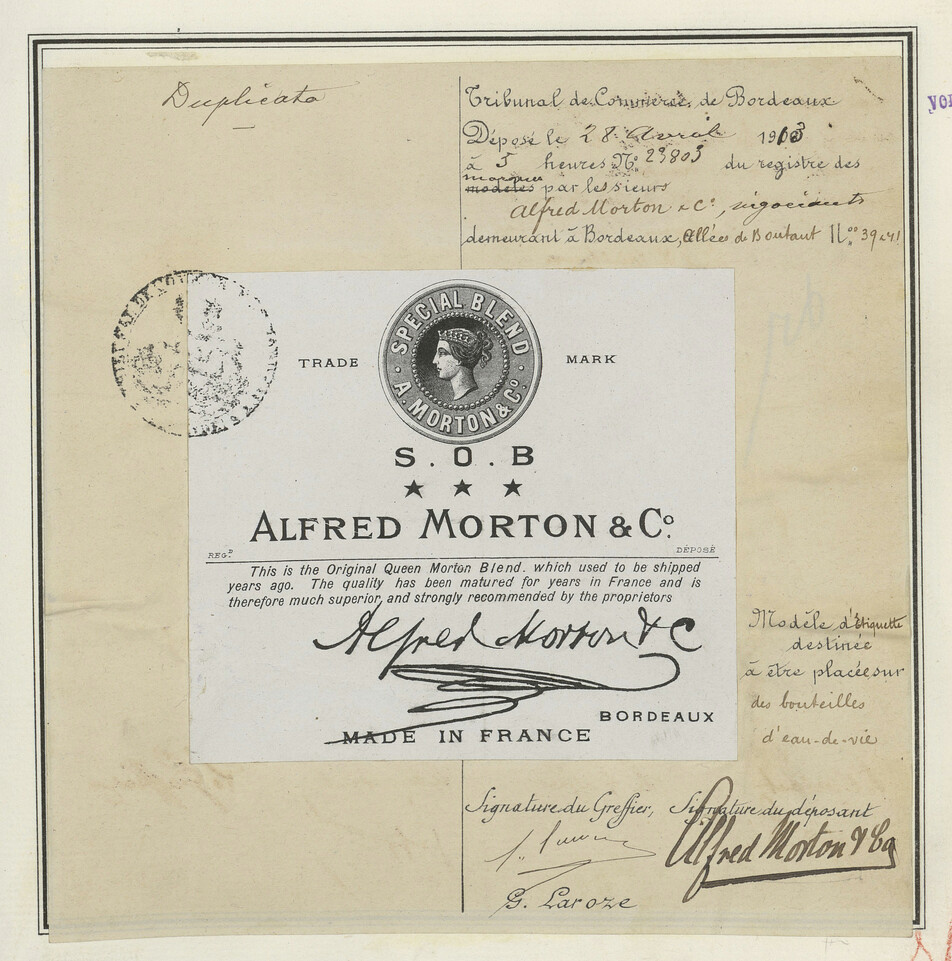 Duplicata
Tribunal de Commerce de Bordeaux
Déposé le 28 Avril 1903
à 3 heures No. 23803 du registre des
marques
modèles par les sieurs
Alfred Morton & Co, négociants
demeurant à Bordeaux, Allées de Boutaut Nos 39 & 41
SPECIAL BLEND
A. MORTON & Co.
TRADE MARK
S. O. B
★ ★ ★
ALFRED MORTON & Co.
REGD DÉPOSÉ
This is the Original Queen Morton Blend. which used to be shipped
years ago. The quality has been matured for years in France and is
therefore much superior, and strongly recommended by the proprietors
Alfred Morton & C
BORDEAUX
MADE IN FRANCE
Modèle d'Etiquette
destinée
à être placée sur
des bouteilles
d'eau-de-vie
Signature du Greffier, Signature du déposant
Alfred Morton & Co
G. Laroze